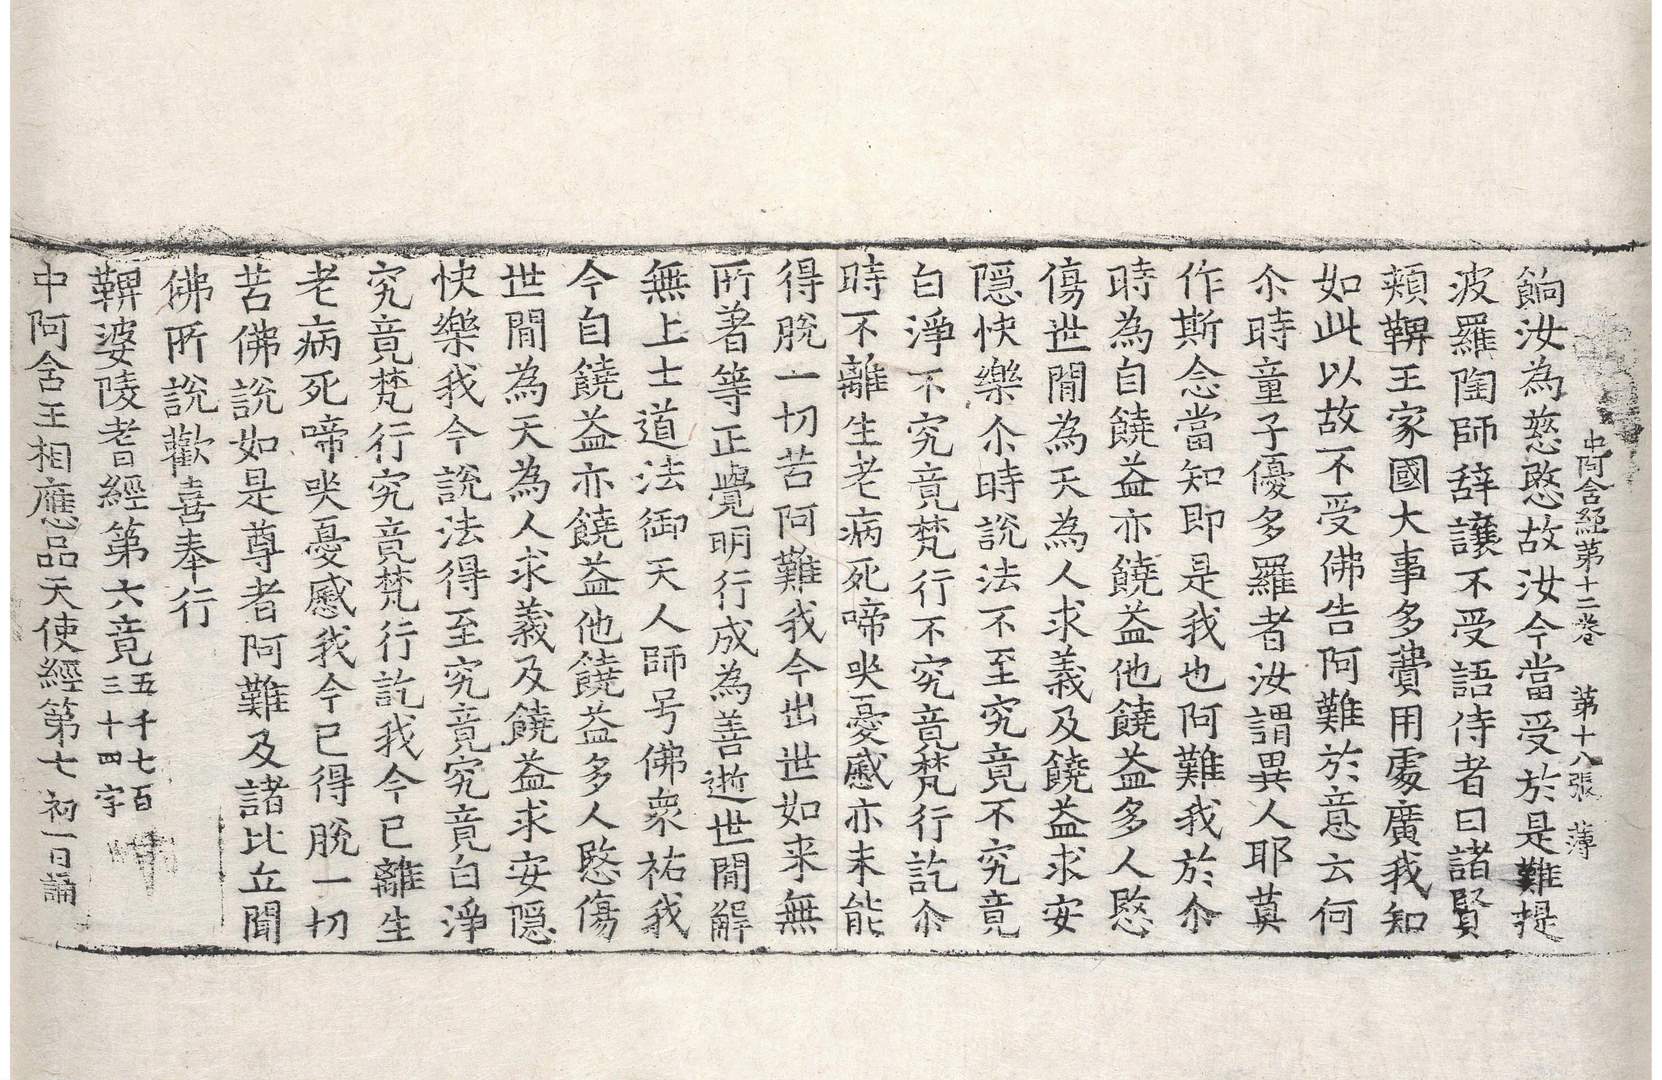 中阿含経第十二巻　第十八張　薄
餉汝為慈愍故汝今當受於是難提
波羅陶師辞讓不受語侍者曰諸賢
頰鞞王家國大事多費用處廣我知
如此以故不受佛告阿難於意云何
尒時童子優多羅者汝謂異人耶莫
作斯念當知即是我也阿難我於尒
時為自饒益亦饒益他饒益多人愍
傷世閒為天為人求義及饒益求安
隠快樂尒時說法不至究竟不究竟
白淨不究竟梵行不究竟梵行訖尒
時不離生老病死啼哭憂慼亦未能
得脫一切苦阿難我今出世如来無
所著等正覺明行成為善逝世閒解
無上士道法御天人師号佛衆祐我
今自饒益亦饒益他饒益多人愍傷
世閒為天為人求義及饒益求安隠
快樂我今說法得至究竟究竟白淨
究竟梵行究竟梵行訖我今已離生
老病死啼哭憂慼我今已得脫一切
苦佛說如是尊者阿難及諸比丘聞
佛所說歡喜奉行
鞞婆陵耆經第六竟五千七百三十四字
中阿含王相應品天使經第七初一日誦